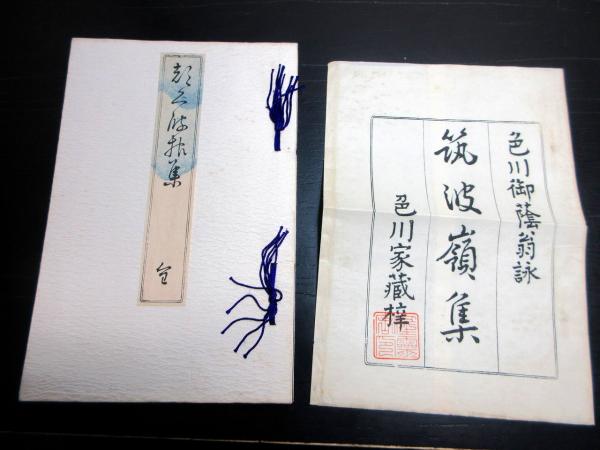 都久波祢集
全
色川御蔭翁詠
筑波嶺集
色川家藏梓